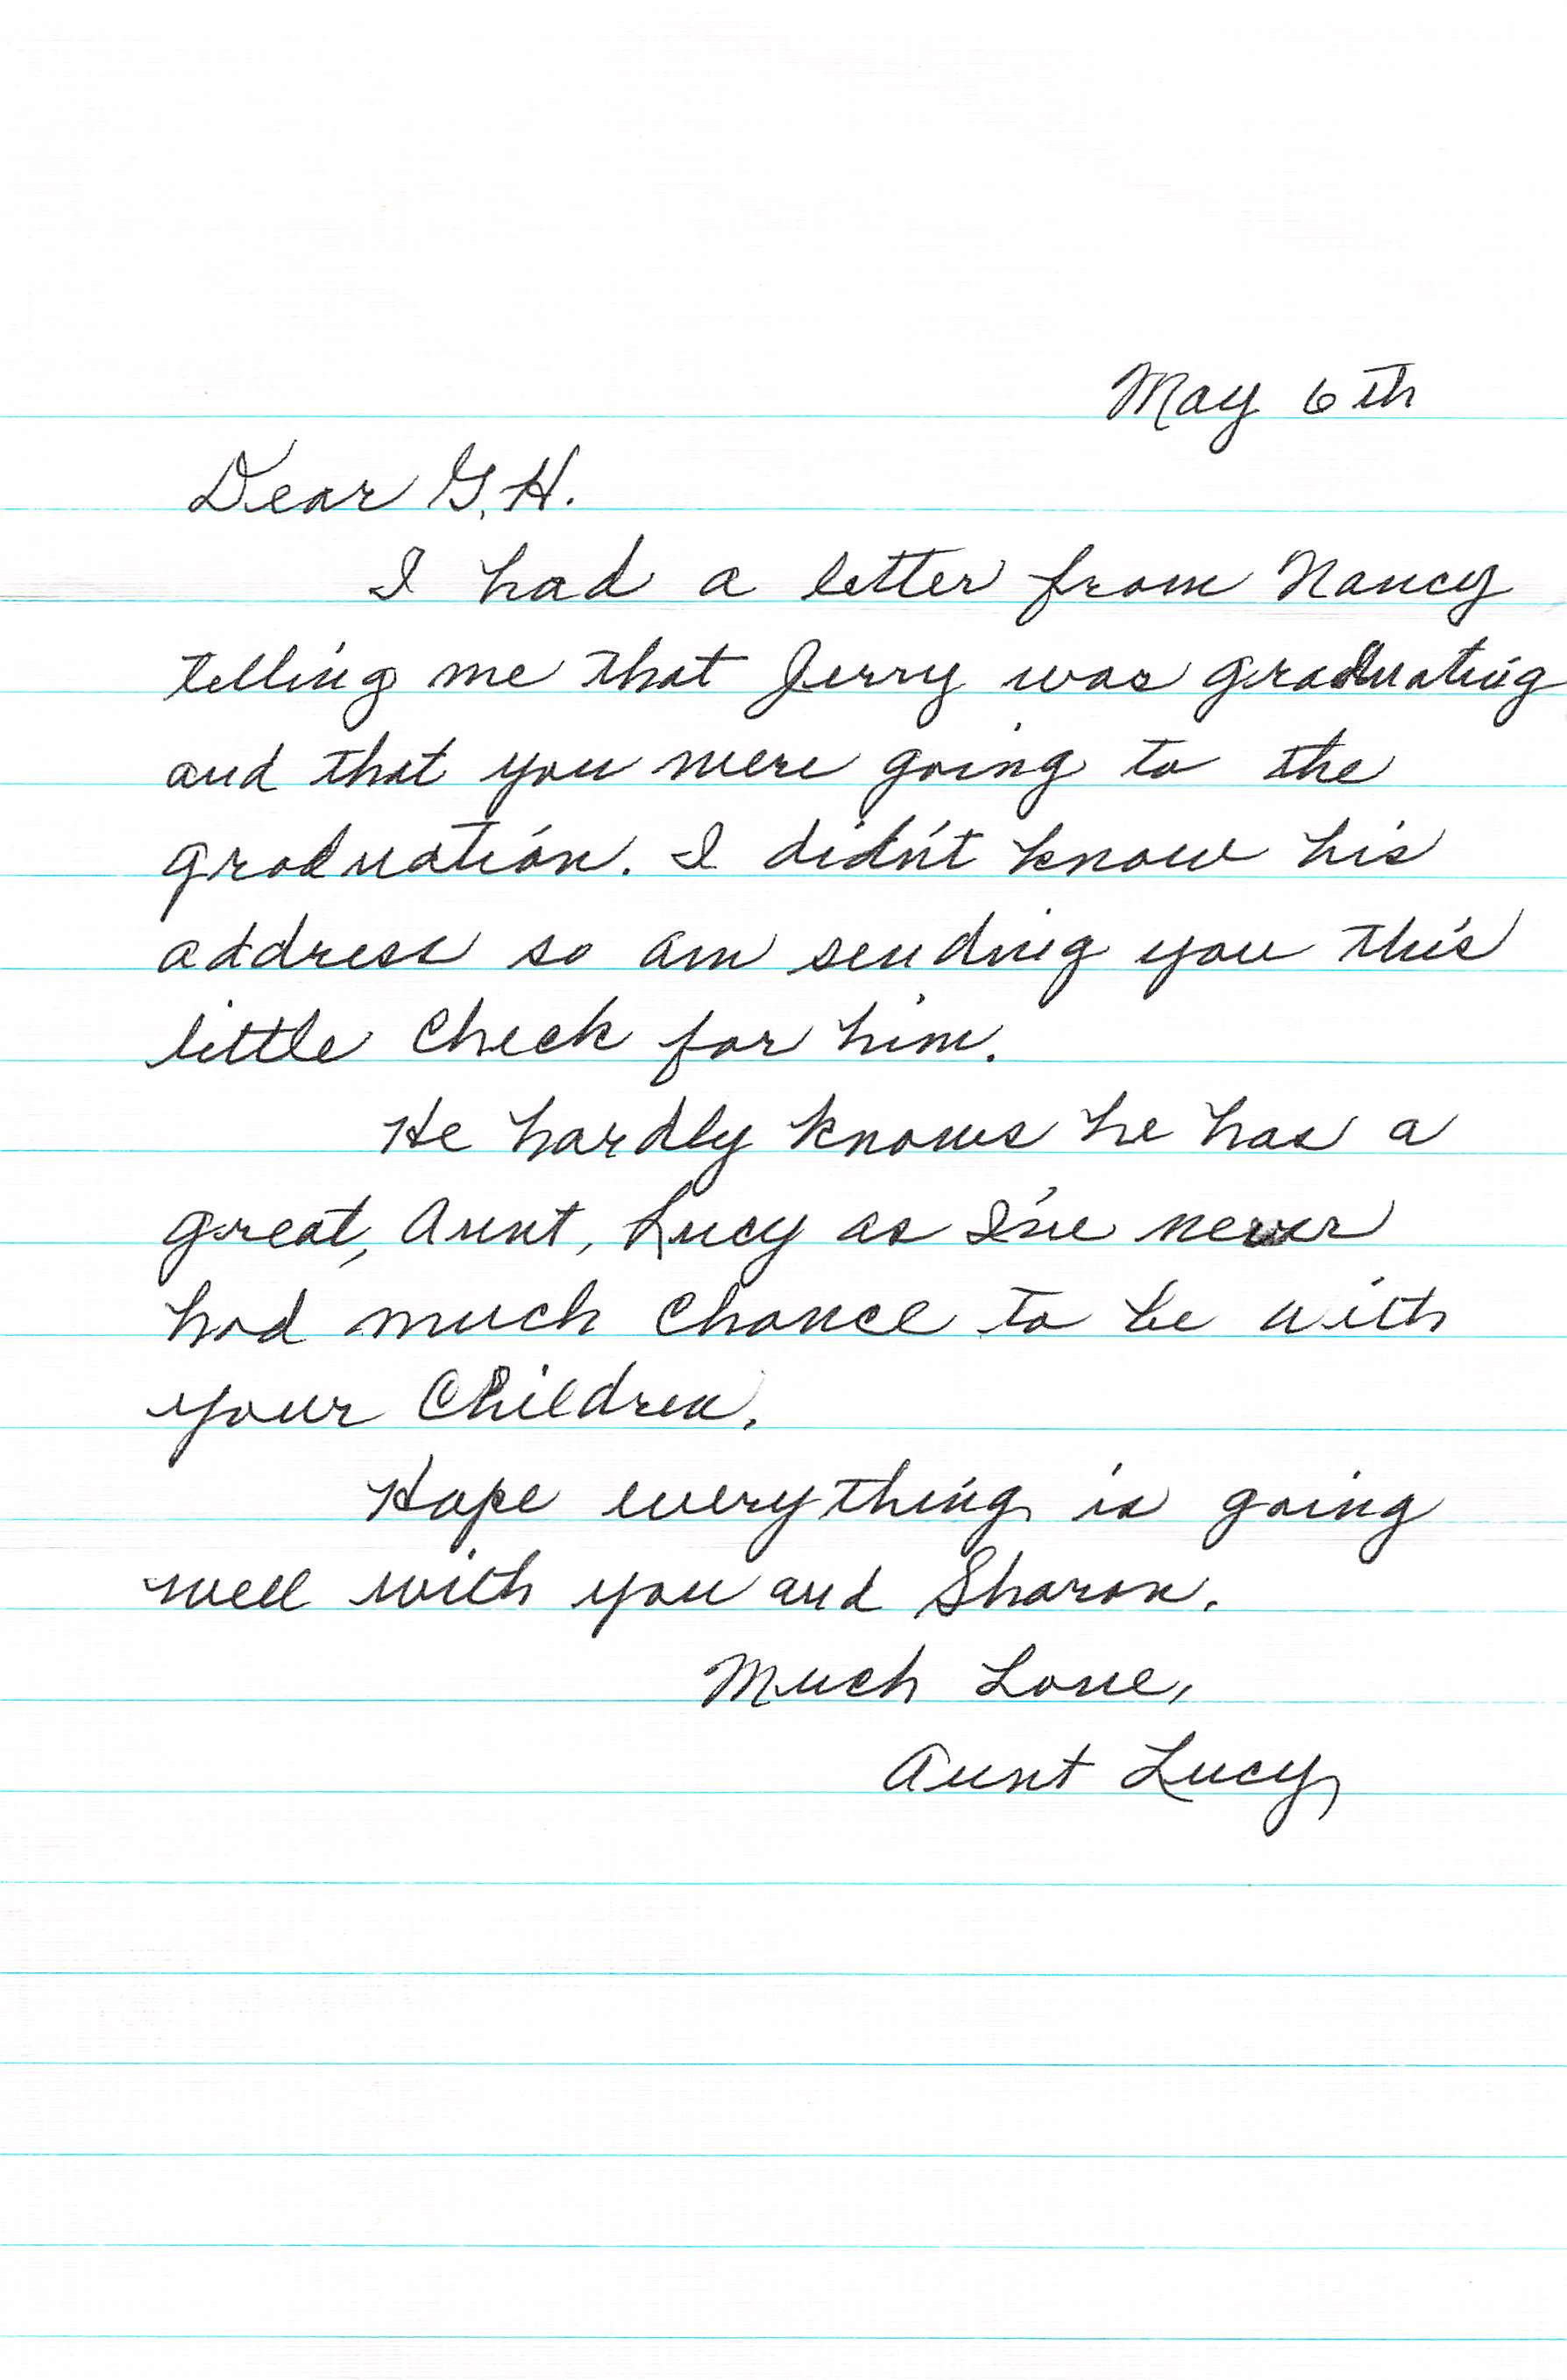 May 6th
Dear G.H.
I had a letter from Nancy
telling me that Jerry was graduating
and that you were going to the
graduation. I didn't know his
address so am sending you this
little Check for him.
He hardly knows he has a
great, Aunt, Lucy as I've never
had much Chance to be with
your Children.
Hope everything is going
well with you and Sharon.
Much Love,
Aunt Lucy